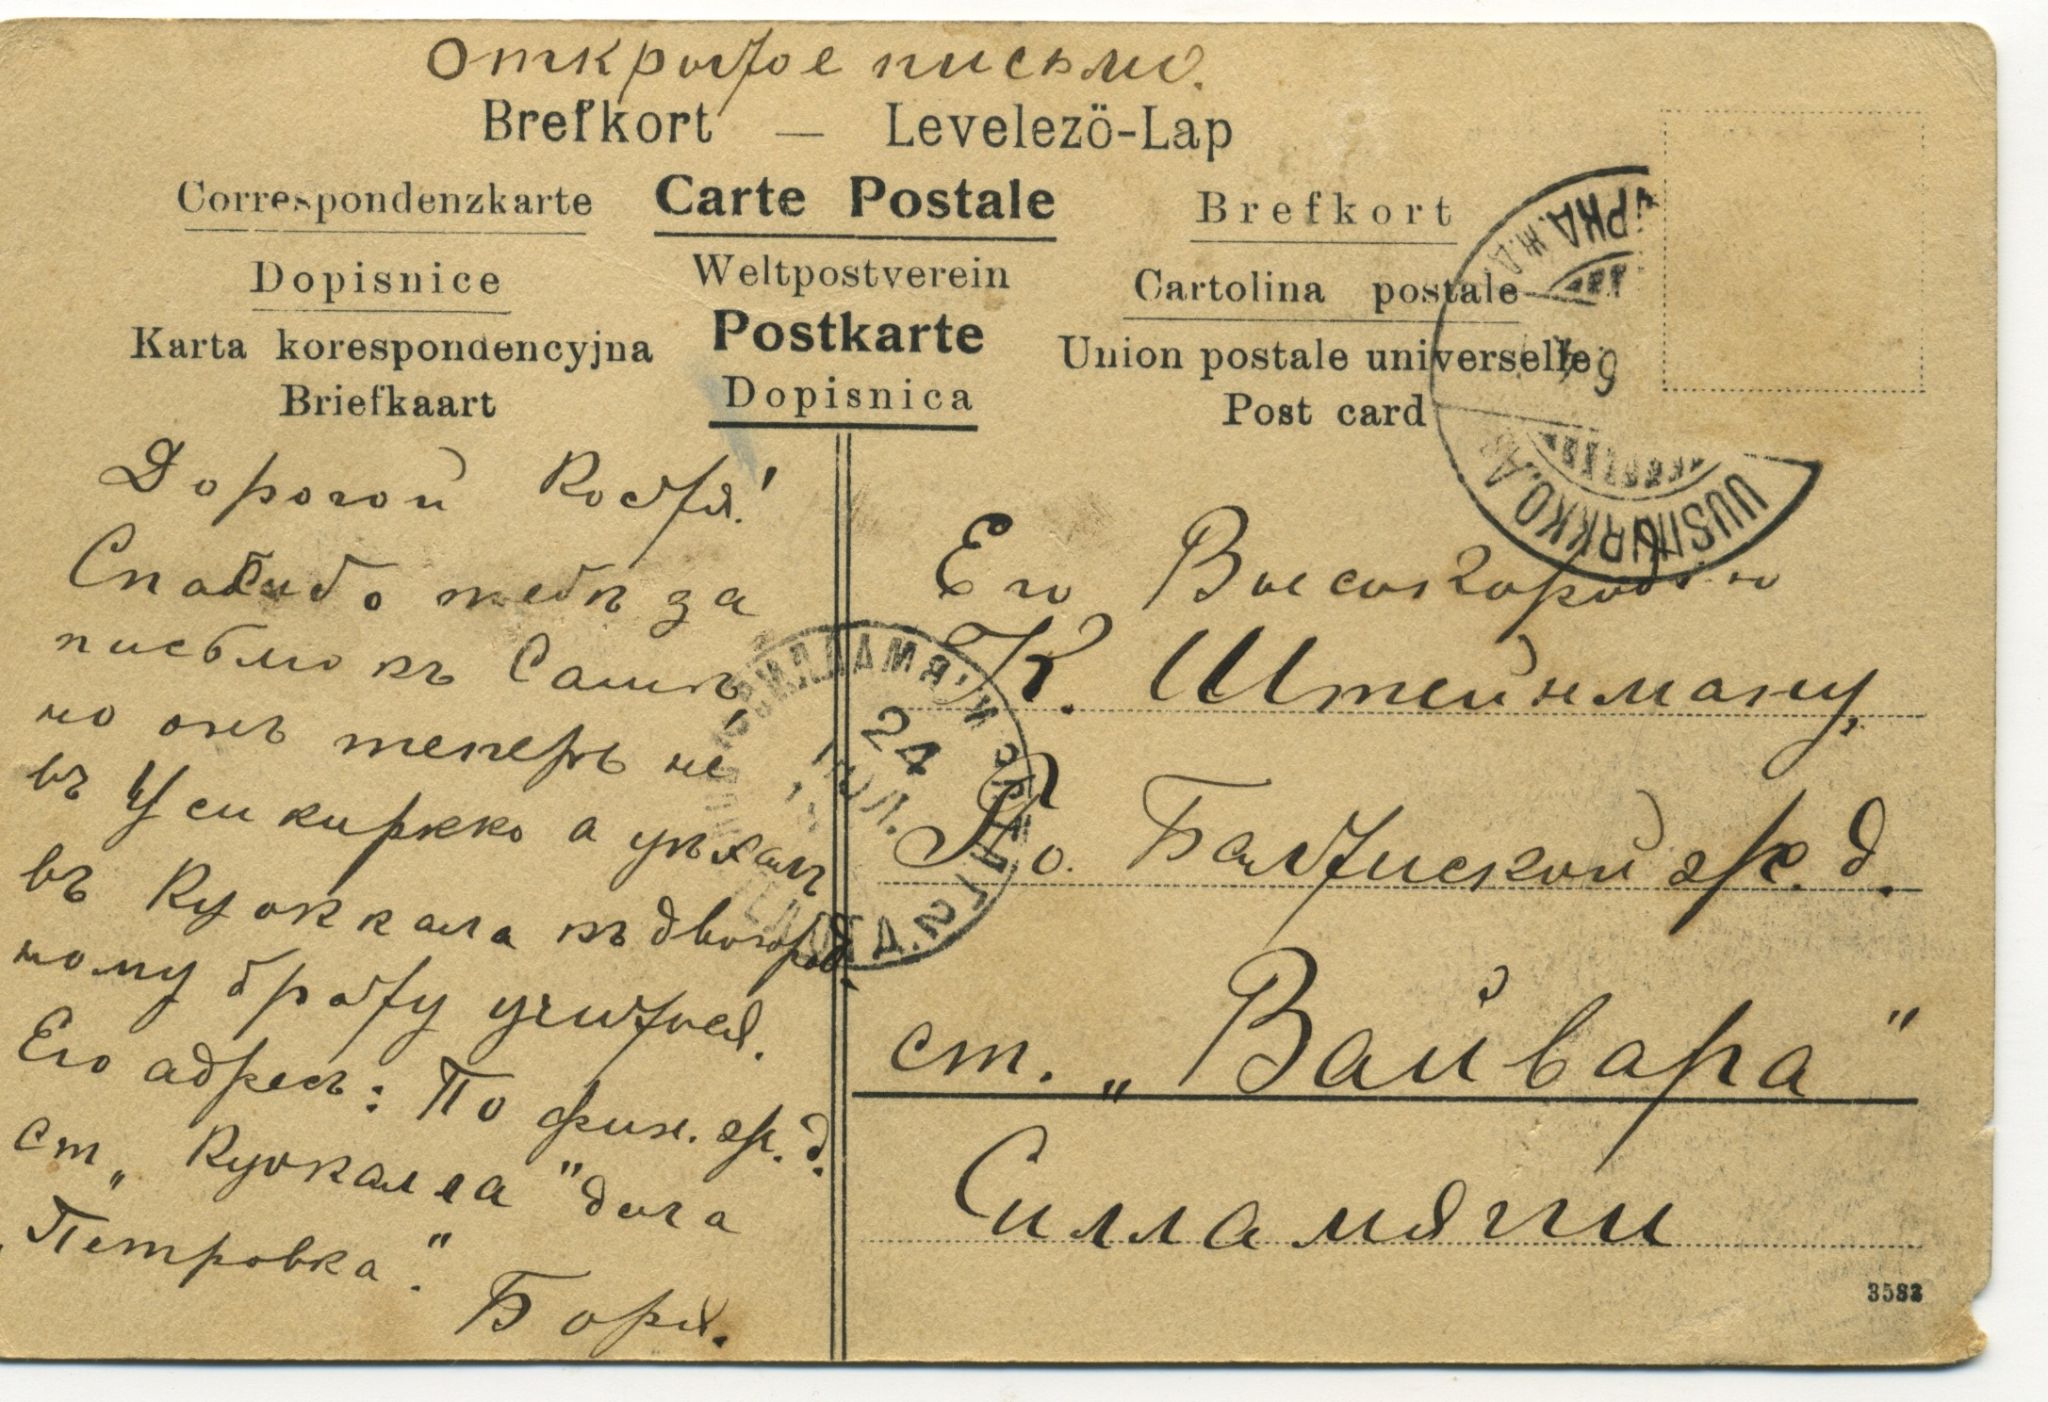 Открытое письмо.
Brefkort — Levelezö-Lap
Correspondenzkarte
Carte Postale
Brefkort
Dopisnice
Weltpostverein
Cartolina postale
Karta korespondencyjna
Postkarte
Union postale universelle
Briefkaart
Dopisnica
Post card
Дорогой Костя!
Спасибо тебѣ за
письмо къ Сашѣ,
но онъ теперь не
въ Усикиркко а уѣхалъ
въ Куоккала къ двоюрод
ному брату учиться.
Его адресъ: По фин. ж. д.
ст. „Куокалла" дача
„Петровка".
Боря.
Его Высокородію
К. Штейнману,
По Балтійской ж. д.
ст. „Вайвара"
Силламяги
3582
UUSIKIRKKO
24